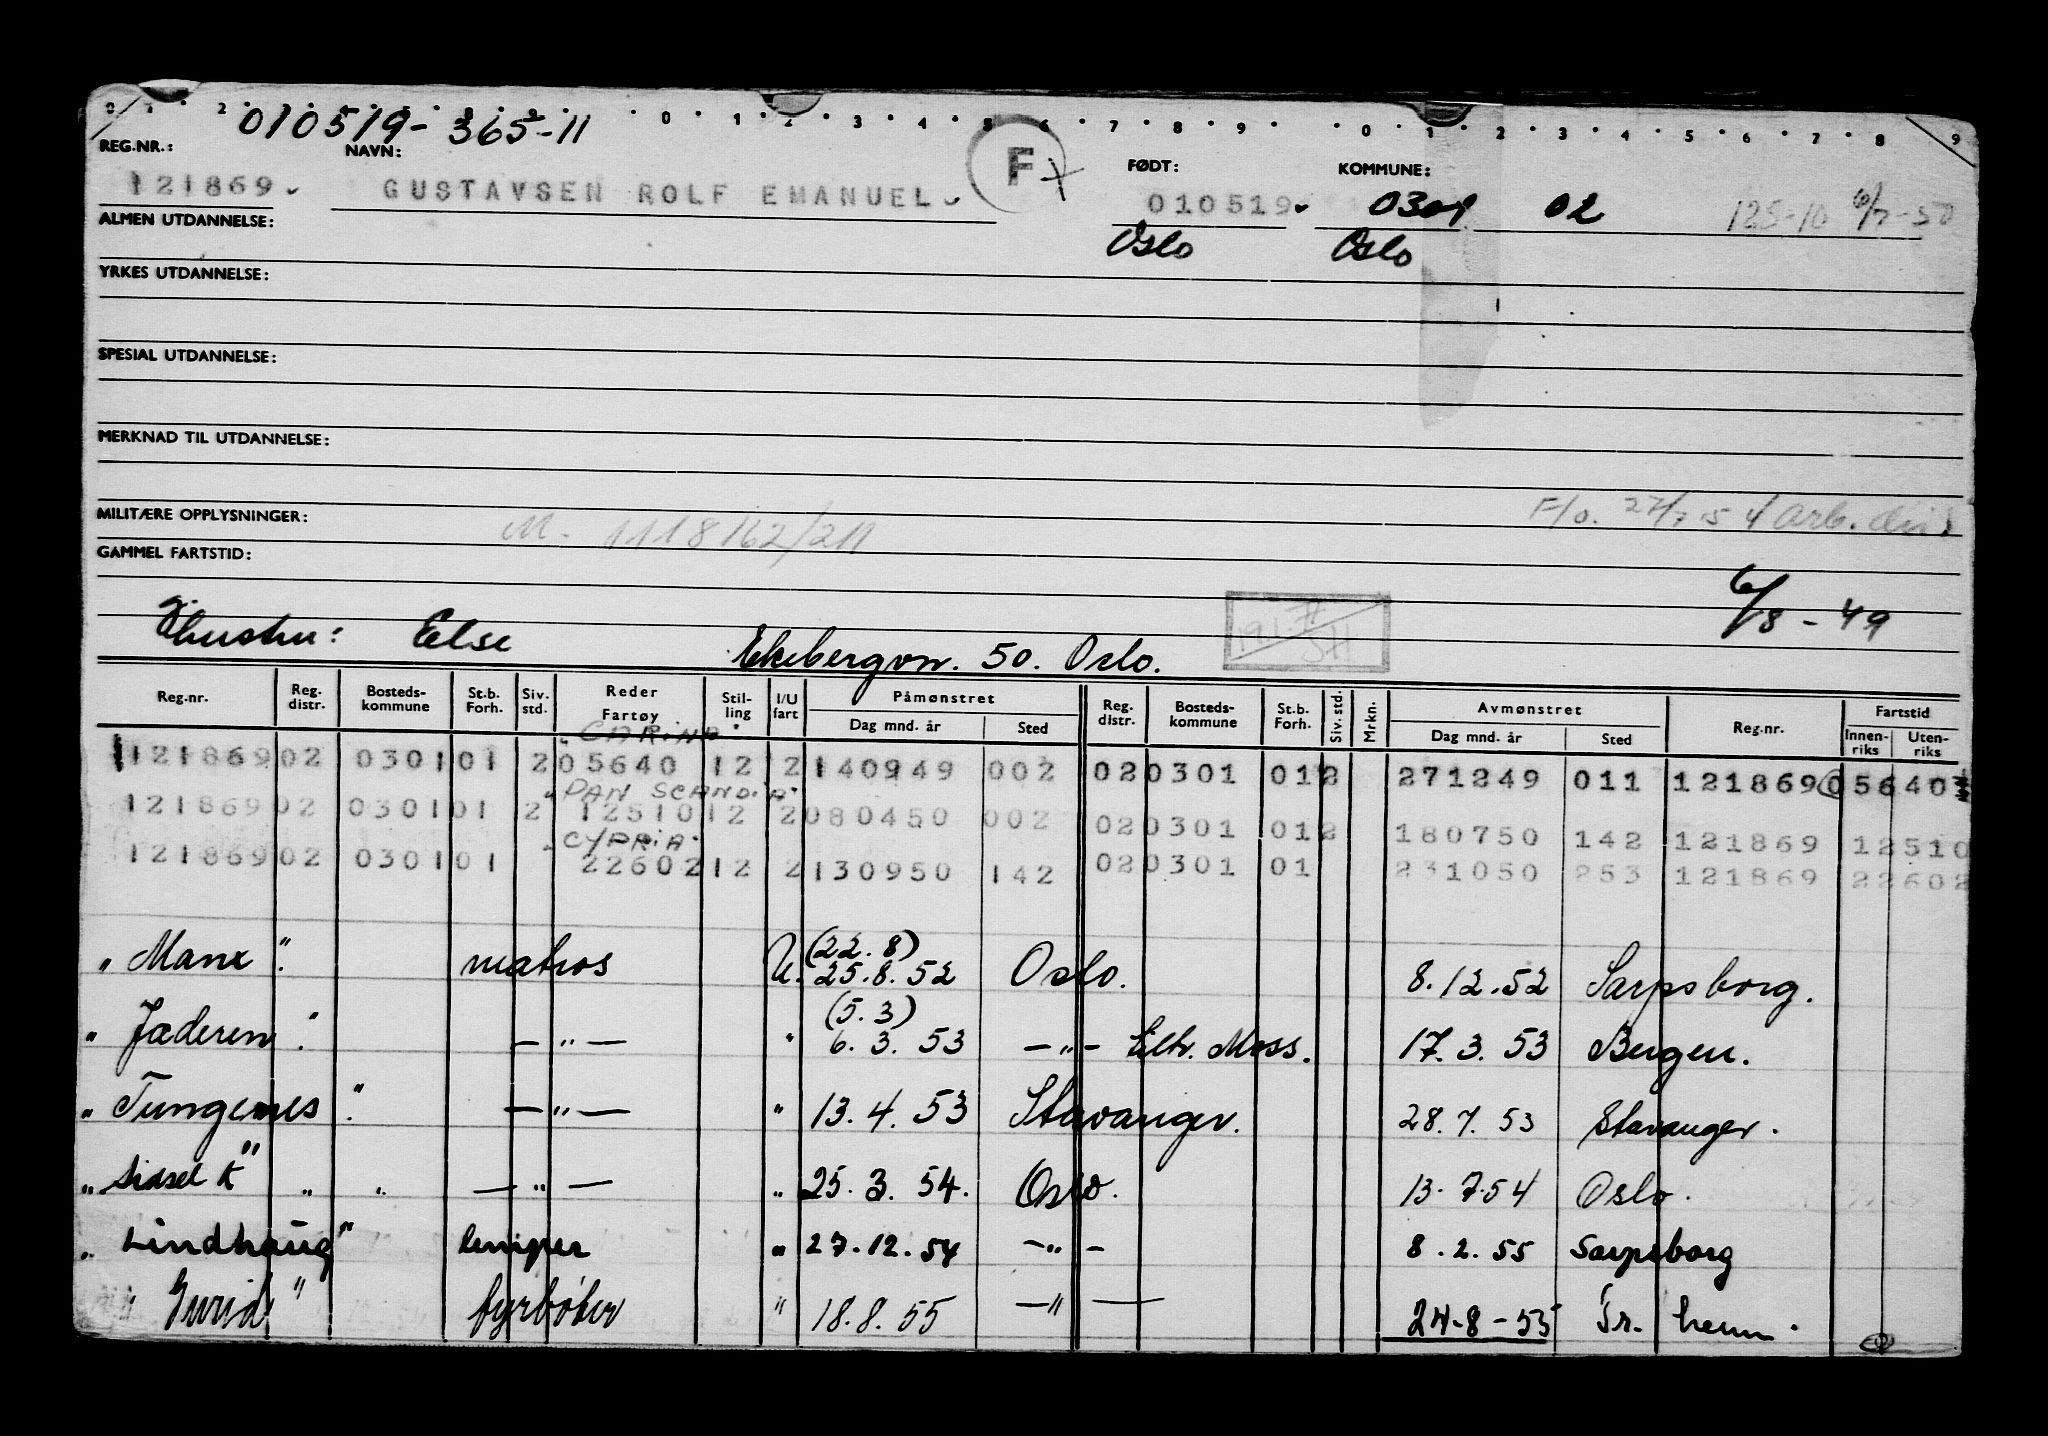 0 1 2 0 1 2 3 4 5 6 7 8 9 0 1 2 3 4 5 6 7 8 9
010519- 365-11
REG.NR.: NAVN: F FØDT: KOMMUNE:
121869 GUSTAVSEN ROLF EMANUEL 010519 0301 02 125-10 6/7-50
ALMEN UTDANNELSE: Oslo Oslo
YRKES UTDANNELSE:
SPESIAL UTDANNELSE:
MERKNAD TIL UTDANNELSE:
MILITÆRE OPPLYSNINGER: M. 1118162/211 F/o. 27/7-54 arb. dir.
GAMMEL FARTSTID:
6/8-49
Hustru: Else Ekebergvn. 50. Oslo.
Reg.nr. Reg. distr. Bosteds-kommune St.b. Forh. Siv. std. Reder Fartøy Stil-ling I/U fart Påmønstret Dag mnd. år Sted Reg. distr. Bosteds-kommune St.b. Forh. Siv. std. Mrkn. Avmønstret Dag mnd. år Sted Reg.nr. Fartstid Innen-riks Uten-riks
"CARINA"
121869 02 0301 01 2 05640 12 2 140949 002 02 0301 01 2 271249 011 121869 05640
"PAN SCANDIA"
121869 02 0301 01 2 12510 12 2 080450 002 02 0301 01 2 180750 142 121869 12510
"CYPRIA"
121869 02 0301 01 22602 12 2 130950 142 02 0301 01 231050 253 121869 22602
(22.8)
"Manx". matros U. 25.8.52 Oslo. 8.12.52 Sarpsborg.
(5.3)
"Jæderen". — " — " 6.3.53 — " — Eltr. Moss. 17.3.53 Bergen.
"Tungenes". — " — " 13.4.53 Stavanger. 28.7.53 Stavanger.
"Sidsel K" " " — " — " 25.3.54. Oslo. 13.7.54 Oslo.
"Lindhaug" lemper " 27.12.54 — " — 8.2.55 Sarpsborg
"Gurid" fyrbøter " 18.8.55 — " — 24-8-55 Tr. heim.